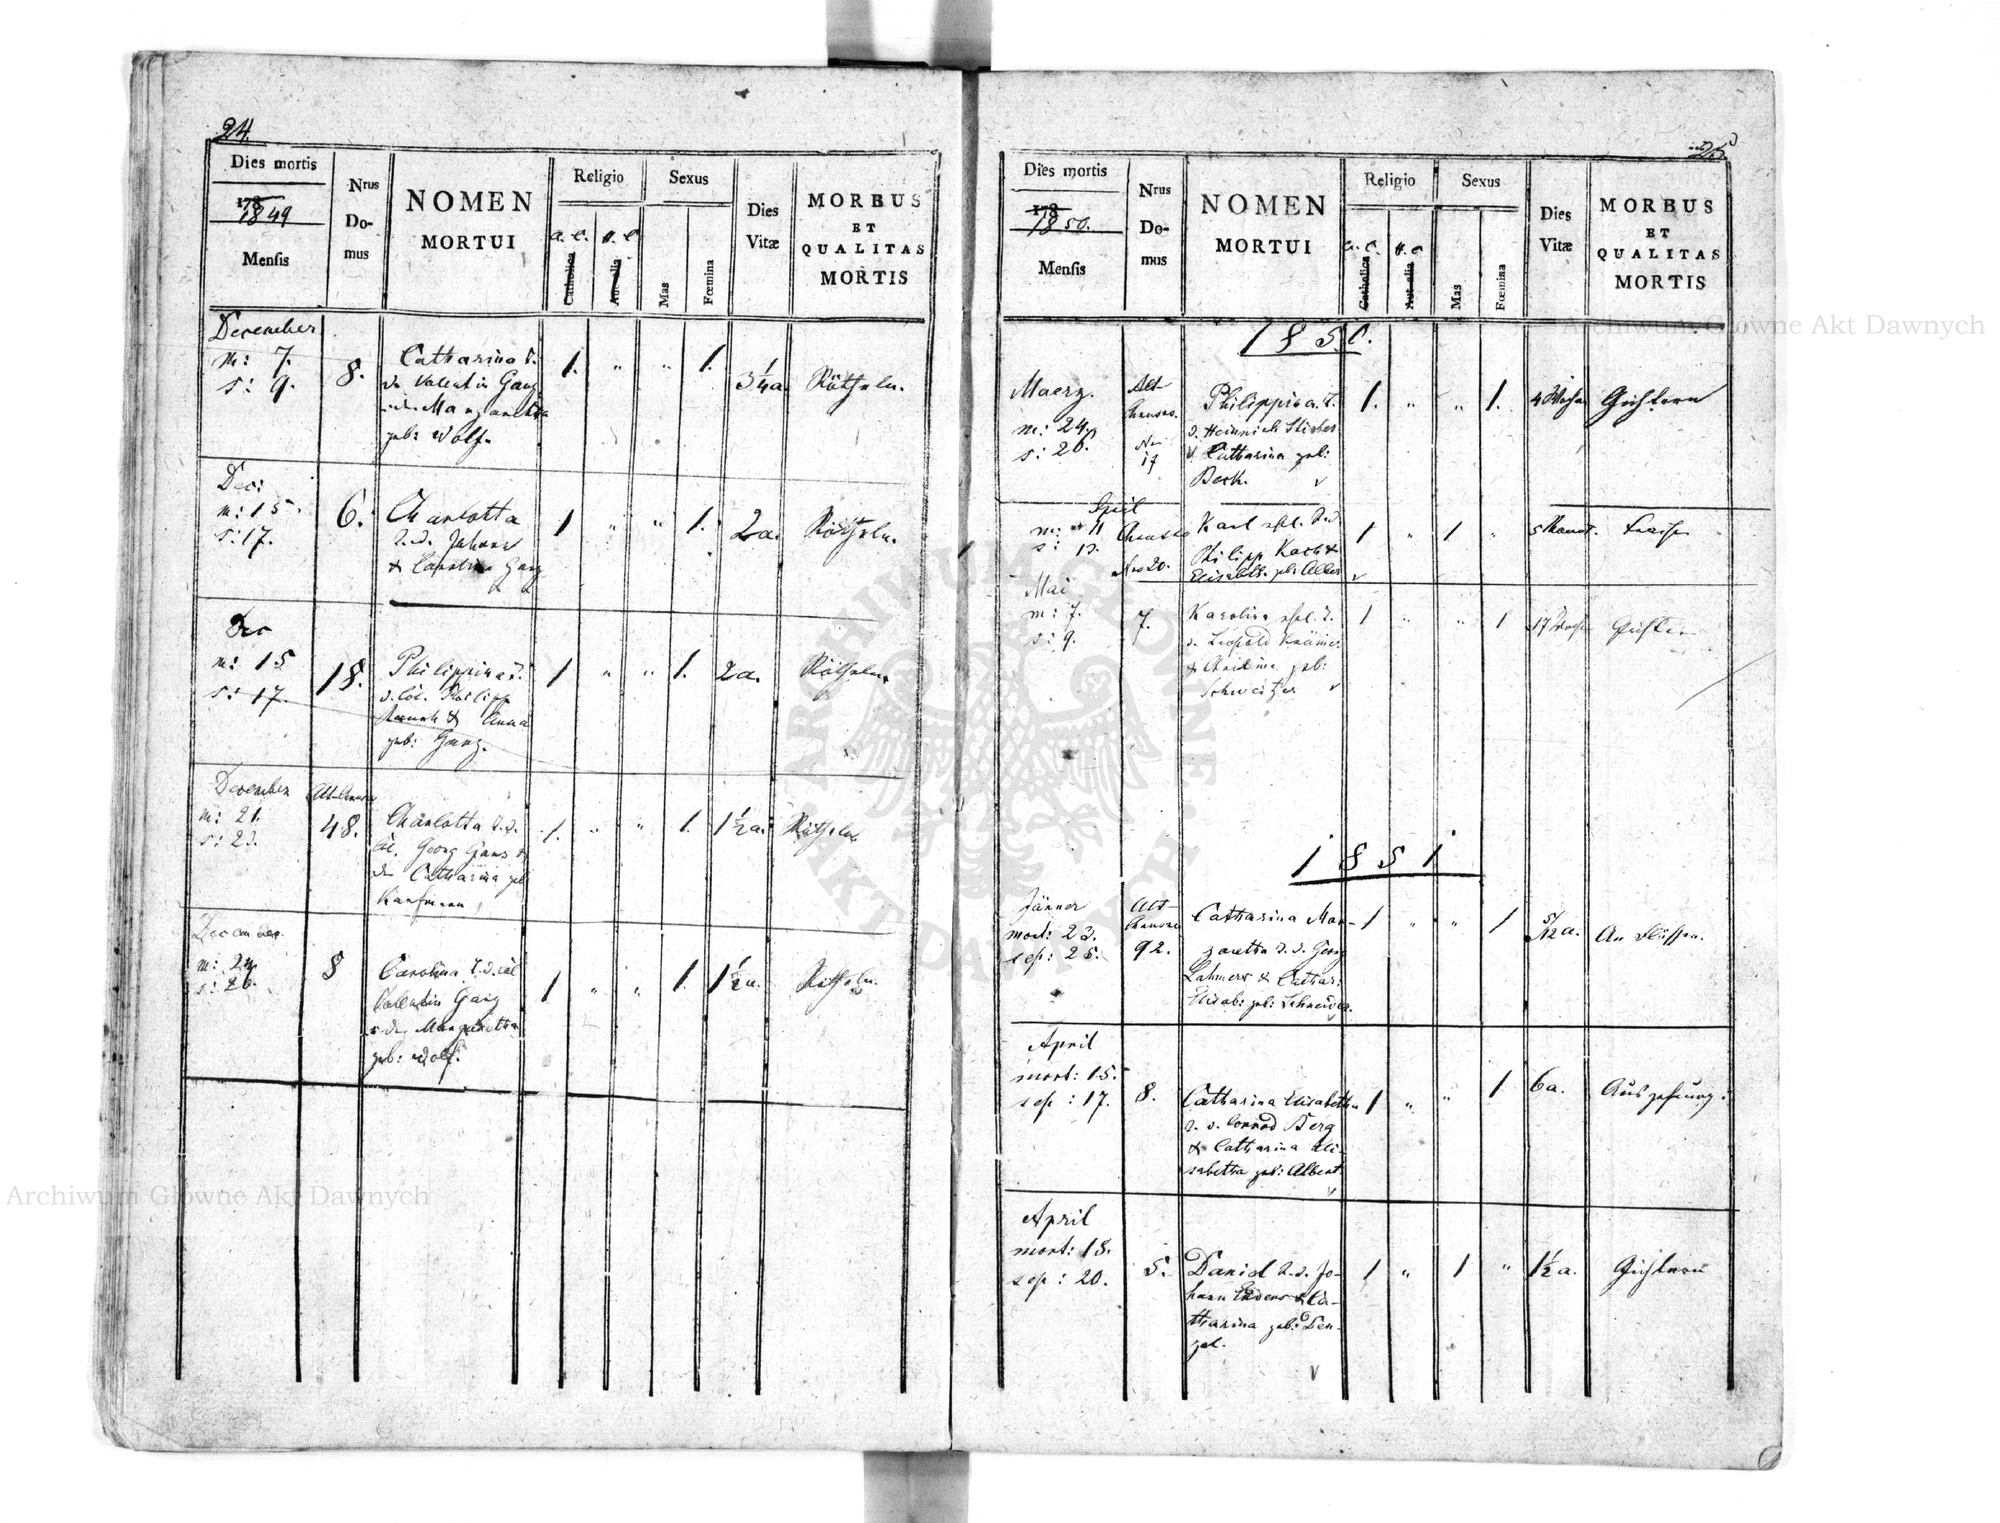 24.
Dies mortis
1849
Mensis
Nrus
Do-
mus
NOMEN
MORTUI
Religio
a. c.
h. c.
Catholica
Sexus
Mas
Fœmina
Dies
Vitæ
MORBUS
ET
QUALITAS
MORTIS
December
m: 7.
s: 9.
8.
Catharina T.
d. Valentin Ganz
Margaretha
geb: Wolf.
1. " " 1.
3 1/4 a.
Rötheln.
Dec:
m: 15.
s: 17.
6.
Charlotta
T. d. Johann
& Carolina Ganz
1 " " 1.
2 a.
Rötheln.
Dec
m: 15
s: 17.
18.
Philippina T.
d. Col. Philipp
& Anna
geb: Ganz.
1 " " 1.
2a.
Rötheln.
December
m: 21.
s: 23.
48.
Charlotta T. d.
Col. Georg Ganz &
der Catharina geb
Kaufmann
1. " " 1.
1 1/2 a.
Rötheln.
December
m: 24.
s: 26.
8
Carolina T. d. Col
Valentin Ganz
& der Margaretha
geb: Wolf.
1 " " 1.
1 1/2 a.
Rötheln.
25.
Dies mortis
1850.
Mensis
Nrus
Do-
mus
NOMEN
MORTUI
Religio
a. c.
h. c.
Catholica
Sexus
Mas
Fœmina
Dies
Vitæ
MORBUS
ET
QUALITAS
MORTIS
1850.
Maerz.
m: 24.
s: 26.
Alt
Nro
17
Philippina T.
d. Heinrich
& Catharina geb:
Bech.
1. " " 1.
4 Wochen
Gichtern
April
m: 11
s: 13.
Nro 20.
Karl ehl. S. d.
Philipp Koch &
Elisabeth geb: Alber
1 " 1 "
5 Monat.
Mai
m: 7.
s: 9.
7.
Karolina ehl. T.
d. Leopold Krämer
& Christina geb:
Schweitzer
1 " " 1
17 Woch
Gichter
1851
Jänner
mort: 23.
sep: 25.
Alt
92.
Catharina Mar-
garetha T. d. Georg
Lahmers & Cathar:
Elisab: geb: Schneider.
1 " " 1
5/12 a.
An Flüssen.
April
mort: 15.
sep: 17.
8.
Catharina Elisabetha
T. d. Conrad Berg
& Catharina Eli-
sabetha geb: Albert
1 " " 1
6 a.
Auszehrung.
April
mort: 18.
sep: 20.
5.
Daniel S. d. Jo-
hann Enders & Ca-
tharina geb: Den-
gel.
1 " 1 "
1 1/2 a.
Gichtern
ARCHIWUM GŁÓWNE AKT DAWNYCH
Archiwum Główne Akt Dawnych
Archiwum Główne Akt Dawnych